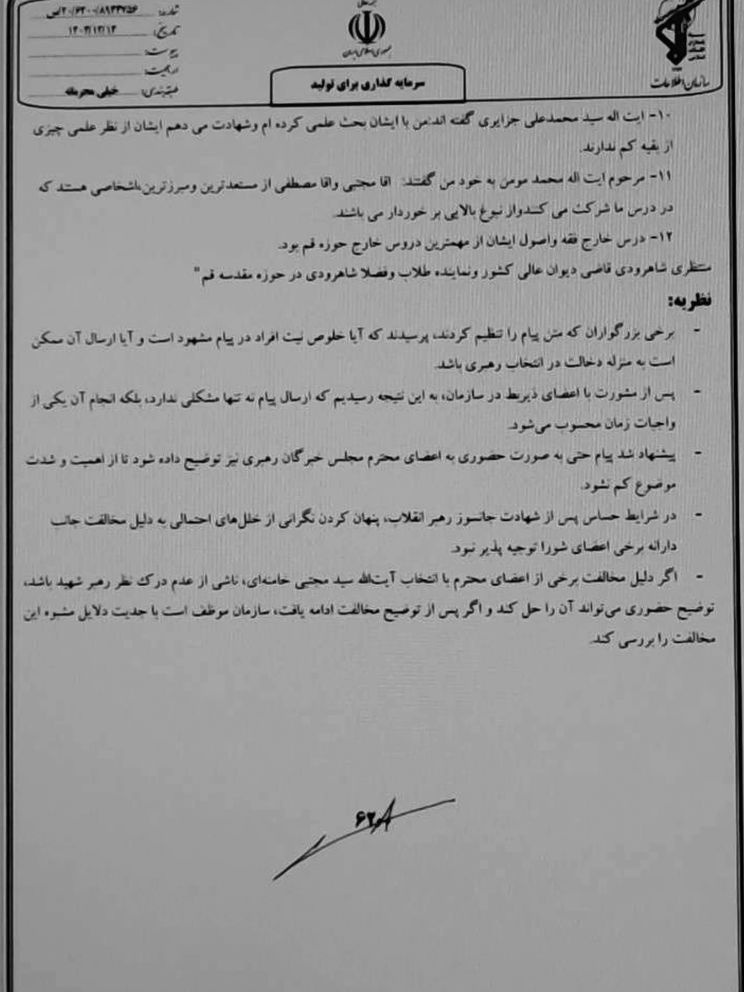 شماره: ۲۰/۶۲۰۰/۸۹۳۳۷۵۶/ص
تاریخ:
پیوست:
اهمیت:
طبقه‌بندی: خیلی محرمانه
جمهوری اسلامی ایران
سرمایه گذاری برای تولید
سازمان اطلاعات
۱۰- ایت اله سید محمدعلی جزایری گفته اند:من با ایشان بحث علمی کرده ام وشهادت می دهم ایشان از نظر علمی چیزی
از بقیه کم ندارند.
۱۱- مرحوم ایت اله محمد مومن به خود من گفتند: اقا مجتبی واقا مصطفی از مستعدترین ومبرزترین،اشخاصی هستند که
در درس ما شرکت می کنندواز نبوغ بالایی بر خوردار می باشند.
۱۲- درس خارج فقه واصول ایشان از مهمترین دروس خارج حوزه قم بود.
منتظری شاهرودی قاضی دیوان عالی کشور ونماینده طلاب وفضلا شاهرودی در حوزه مقدسه قم"
نظریه:
- برخی بزرگواران که متن پیام را تنظیم کردند، پرسیدند که آیا خلوص نیت افراد در پیام مشهود است و آیا ارسال آن ممکن
است به منزله دخالت در انتخاب رهبری باشد.
- پس از مشورت با اعضای ذیربط در سازمان، به این نتیجه رسیدیم که ارسال پیام نه تنها مشکلی ندارد، بلکه انجام آن یکی از
واجبات زمان محسوب می‌شود.
- پیشنهاد شد پیام حتی به صورت حضوری به اعضای محترم مجلس خبرگان رهبری نیز توضیح داده شود تا از اهمیت و شدت
موضوع کم نشود.
- در شرایط حساس پس از شهادت جانسوز رهبر انقلاب، پنهان کردن نگرانی از خلل‌های احتمالی به دلیل مخالفت جانب
دارانه برخی اعضای شورا توجیه پذیر نبود.
- اگر دلیل مخالفت برخی از اعضای محترم با انتخاب آیت‌الله سید مجتبی خامنه‌ای، ناشی از عدم درک نظر رهبر شهید باشد،
توضیح حضوری می‌تواند آن را حل کند و اگر پس از توضیح مخالفت ادامه یافت، سازمان موظف است با جدیت دلایل مشبوه این
مخالفت را بررسی کند.